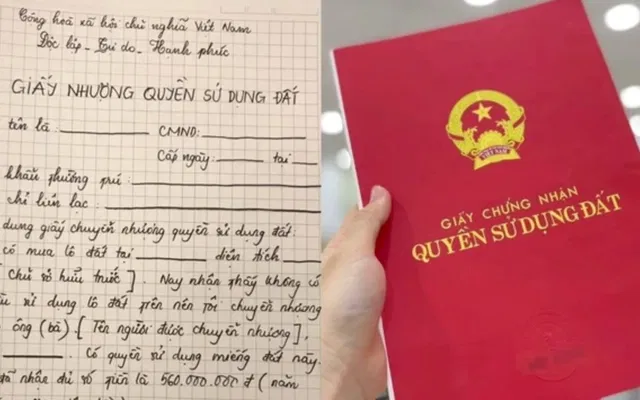 Cộng hoà xã hội chủ nghĩa Việt Nam
Độc lập - Tự do - Hạnh phúc
GIẤY NHƯỢNG QUYỀN SỬ DỤNG ĐẤT
tên là: CMND:
Cấp ngày: tại
khẩu thường trú:
chỉ liên lạc:
dung giấy chuyển nhượng quyền sử dụng đất:
có mua lô đất tại diện tích
Chủ sở hữu trước]. Nay nhận thấy không có
sử dụng lô đất trên nên tôi chuyển nhượng
ông (bà) [Tên người được chuyển nhượng],
Có quyền sử dụng miếng đất này.
đã nhận đủ số tiền là 560.000.000 đ (năm
VIỆT NAM
GIẤY CHỨNG NHẬN
QUYỀN SỬ DỤNG ĐẤT